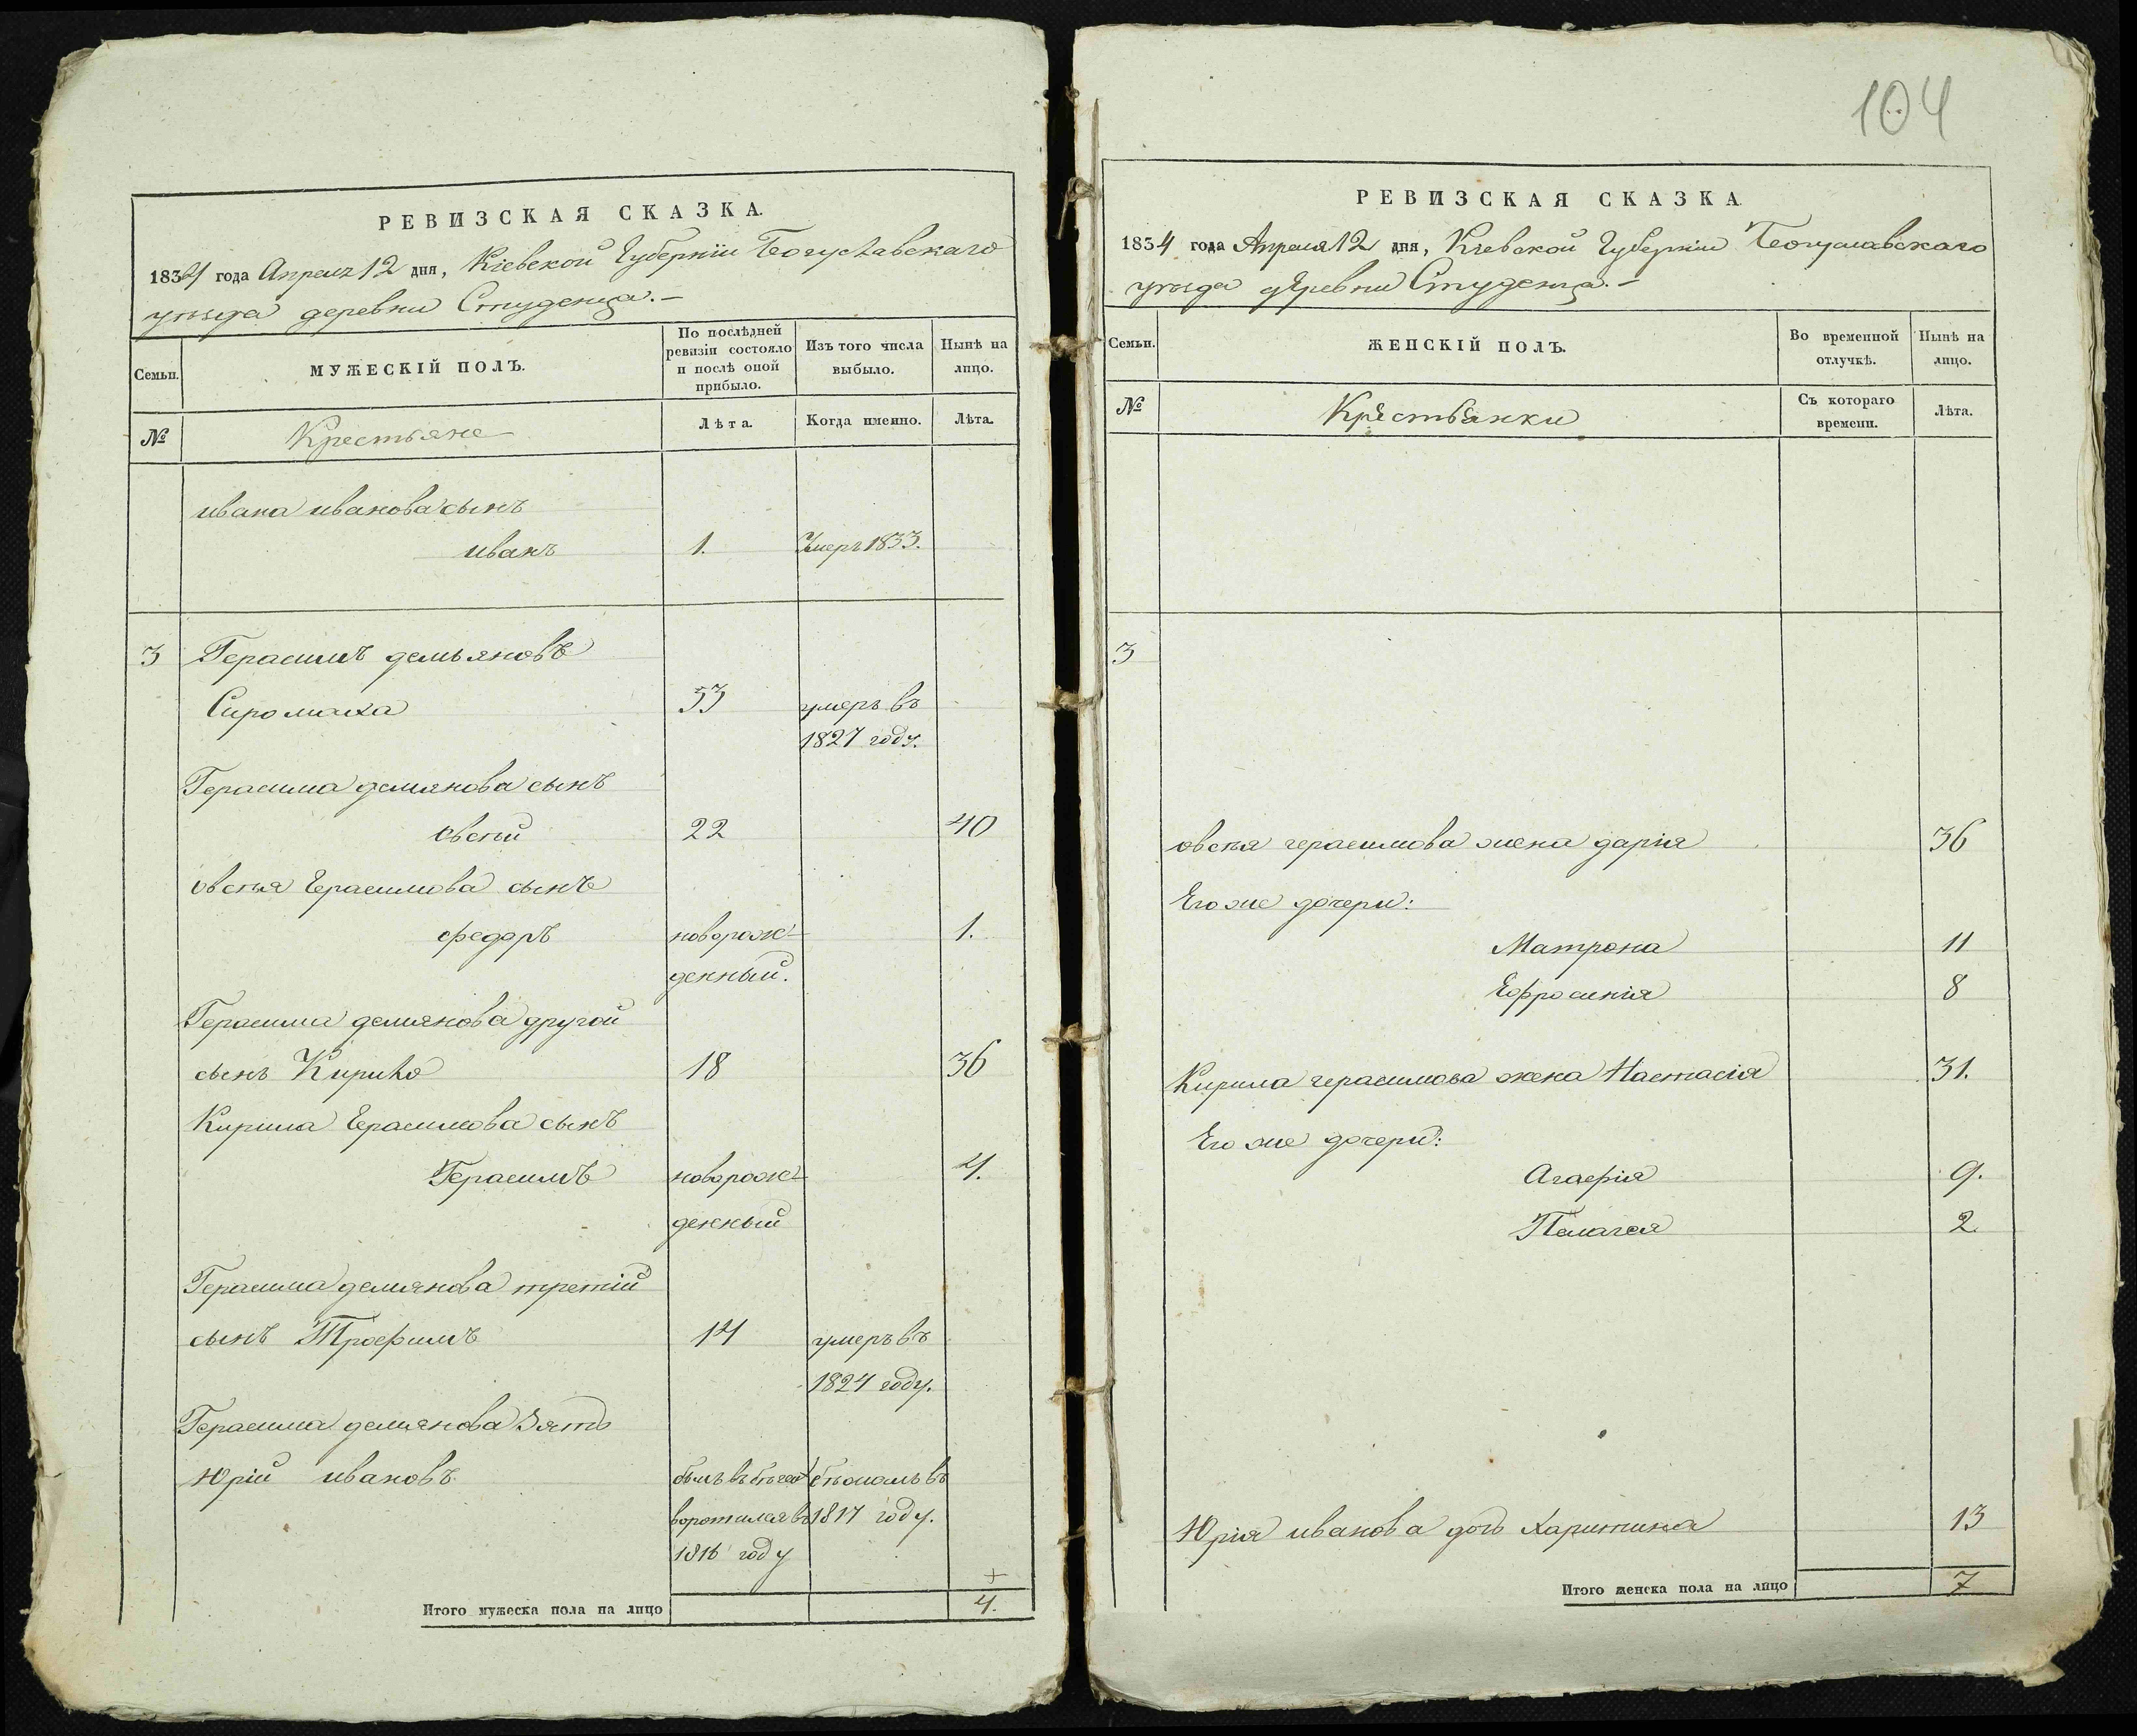 РЕВИЗСКАЯ СКАЗКА.
1834 года Апреля 12 дня, Кіевской Губерніи Богуславскаго
уѣзда деревни Студенца.-
Семьи.
МУЖЕСКІЙ ПОЛЪ.
По послѣдней ревизіи состояло и послѣ оной прибыло.
Изъ того числа выбыло.
Нынѣ на лицо.
№
Крестьяне
Лѣта.
Когда именно.
Лѣта.
ивана иванова сынъ
иванъ 1. Умеръ 1833.
3 Герасимъ демьяновъ
Сиромаха 53 умеръ въ
1827 году.
Герасима демянова сынъ
овсѣй 22 40
овсѣя Герасимова сынъ
федоръ новорож- 1.
денный.
Герасима демянова другой
сынъ Кирило 18 36
Кирила Герасимова сынъ
Герасимъ новорож- 4.
денный
Герасима демянова третій
сынъ Трофимъ 14 умеръ въ
1824 году.
Герасима демянова зять
Юрій ивановъ. былъ въ бѣгахъ бѣжалъ въ
воротился въ 1817 году.
1816 году
+
Итого мужеска пола на лицо 4.
104
РЕВИЗСКАЯ СКАЗКА.
1834 года Апреля 12 дня, Кіевской Губерніи Богуславскаго
уѣзда деревни Студенца.-
Семьи.
ЖЕНСКІЙ ПОЛЪ.
Во временной отлучкѣ.
Нынѣ на лицо.
№
Крестьянки
Съ котораго времени.
Лѣта.
3
овсѣя герасимова жена дарія 36
Его же дочери:
Матрона 11
Ефросинія 8
Кирила герасимова жена Настасія 31.
Его же дочери:
Агафія 9.
Пелагея 2
Юрія иванова дочь Харитина 13
Итого женска пола на лицо 7